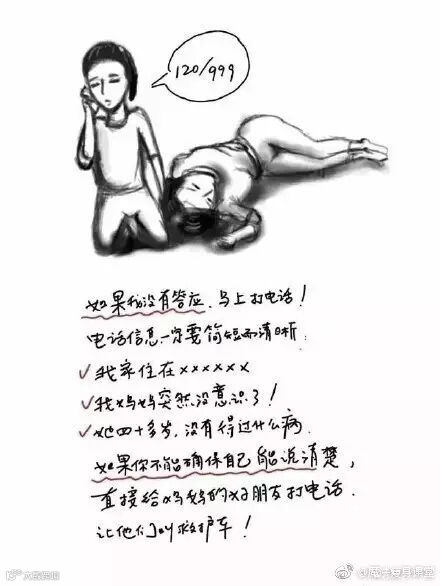 120/999
如果我没有答应，马上打电话！
电话信息一定要简短而清晰：
✓我家住在xxxxxx
✓我妈妈突然没意识了！
✓她四十多岁，没有得过什么病.
如果你不能确保自己能说清楚，
直接给妈妈的好朋友打电话.
让他们叫救护车！